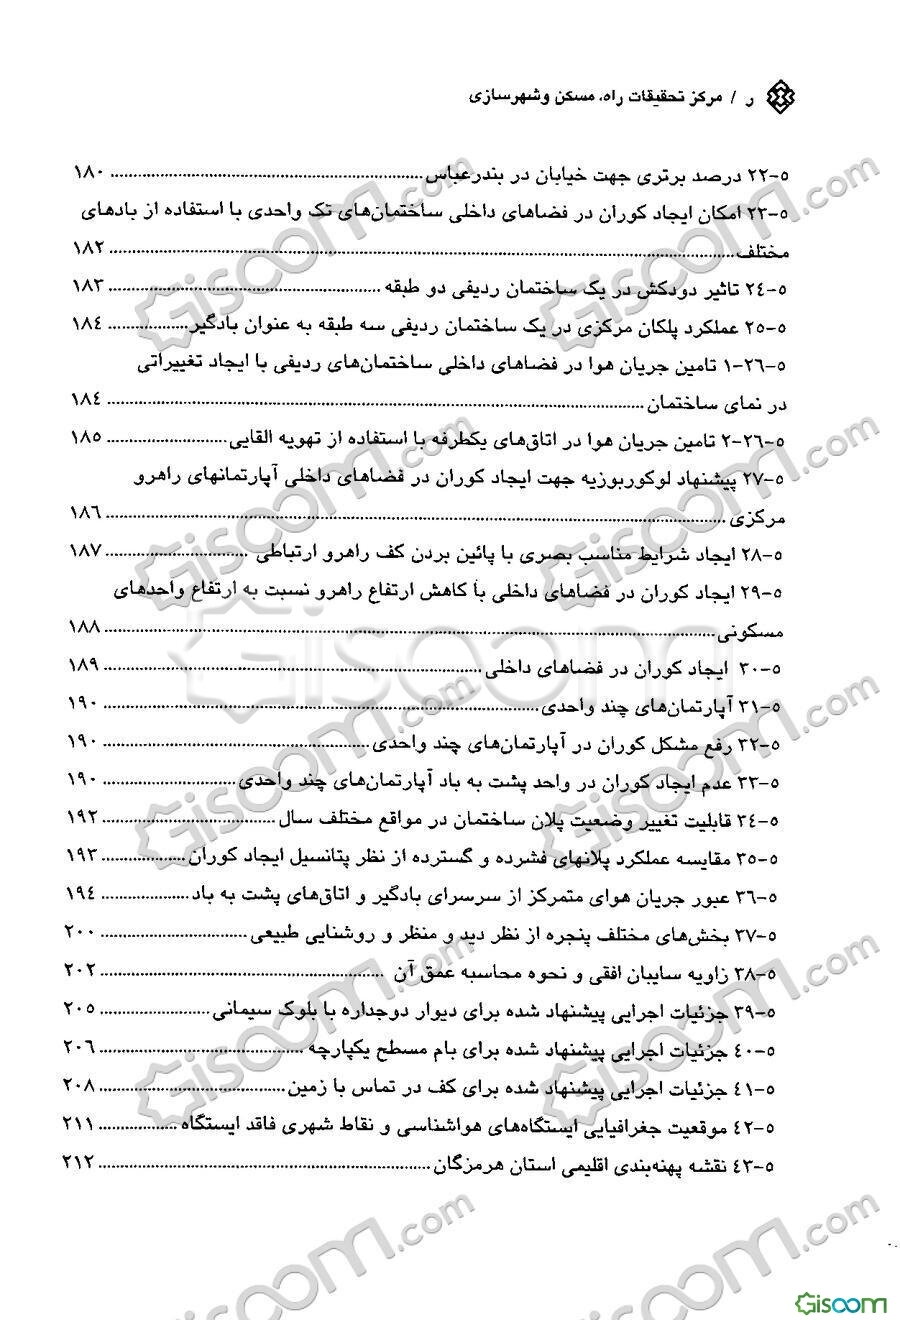 ر / مرکز تحقیقات راه، مسکن وشهرسازی
۵-۲۲ درصد برتری جهت خیابان در بندرعباس ........ ۱۸۰
۵-۲۳ امکان ایجاد کوران در فضاهای داخلی ساختمان‌های تک واحدی با استفاده از بادهای
مختلف ........ ۱۸۲
۵-۲۴ تاثیر دودکش در یک ساختمان ردیفی دو طبقه ........ ۱۸۳
۵-۲۵ عملکرد پلکان مرکزی در یک ساختمان ردیفی سه طبقه به عنوان بادگیر ........ ۱۸۴
۵-۲۶-۱ تامین جریان هوا در فضاهای داخلی ساختمان‌های ردیفی با ایجاد تغییراتی
در نمای ساختمان ........ ۱۸۴
۵-۲۶-۲ تامین جریان هوا در اتاق‌های یکطرفه با استفاده از تهویه القایی ........ ۱۸۵
۵-۲۷ پیشنهاد لوکوربوزیه جهت ایجاد کوران در فضاهای داخلی آپارتمانهای راهرو
مرکزی ........ ۱۸۶
۵-۲۸ ایجاد شرایط مناسب بصری با پائین بردن کف راهرو ارتباطی ........ ۱۸۷
۵-۲۹ ایجاد کوران در فضاهای داخلی با کاهش ارتفاع راهرو نسبت به ارتفاع واحدهای
مسکونی ........ ۱۸۸
۵-۳۰ ایجاد کوران در فضاهای داخلی ........ ۱۸۹
۵-۳۱ آپارتمان‌های چند واحدی ........ ۱۹۰
۵-۳۲ رفع مشکل کوران در آپارتمان‌های چند واحدی ........ ۱۹۰
۵-۳۳ عدم ایجاد کوران در واحد پشت به باد آپارتمان‌های چند واحدی ........ ۱۹۰
۵-۳۴ قابلیت تغییر وضعیت پلان ساختمان در مواقع مختلف سال ........ ۱۹۲
۵-۳۵ مقایسه عملکرد پلانهای فشرده و گسترده از نظر پتانسیل ایجاد کوران ........ ۱۹۳
۵-۳۶ عبور جریان هوای متمرکز از سرسرای بادگیر و اتاق‌های پشت به باد ........ ۱۹۴
۵-۳۷ بخش‌های مختلف پنجره از نظر دید و منظر و روشنایی طبیعی ........ ۲۰۰
۵-۳۸ زاویه سایبان افقی و نحوه محاسبه عمق آن ........ ۲۰۲
۵-۳۹ جزئیات اجرایی پیشنهاد شده برای دیوار دوجداره با بلوک سیمانی ........ ۲۰۵
۵-۴۰ جزئیات اجرایی پیشنهاد شده برای بام مسطح یکپارچه ........ ۲۰۶
۵-۴۱ جزئیات اجرایی پیشنهاد شده برای کف در تماس با زمین ........ ۲۰۸
۵-۴۲ موقعیت جغرافیایی ایستگاه‌های هواشناسی و نقاط شهری فاقد ایستگاه ........ ۲۱۱
۵-۴۳ نقشه پهنه‌بندی اقلیمی استان هرمزگان ........ ۲۱۲
Gisoom